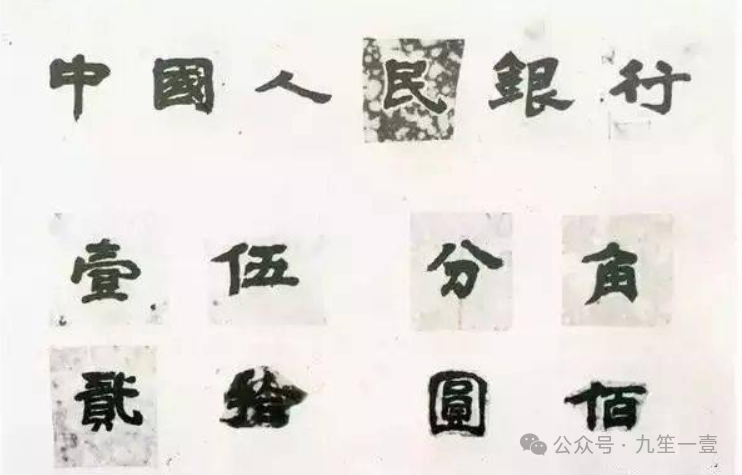 中國人民銀行
壹伍分角
貳拾圓佰
公众号·九笙一壹